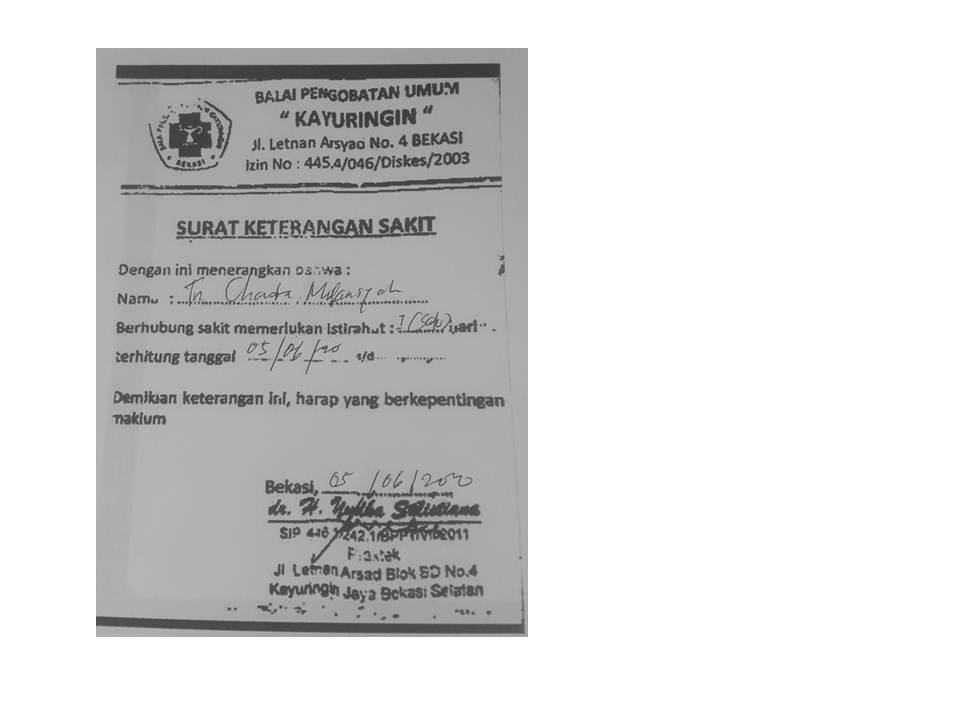 BALAI PENGOBATAN UMUM
“ KAYURINGIN “
Jl. Letnan Arsyad No. 4 BEKASI
Izin No : 445.4/046/Diskes/2003
BEKASI
SURAT KETERANGAN SAKIT
Dengan ini menerangkan bahwa :
Nama : Tn. Chandra
Berhubung sakit memerlukan istirahat : 1 (satu) hari
terhitung tanggal 05/06/20 s/d
Demikian keterangan ini, harap yang berkepentingan
maklum
Bekasi, 05/06/2020
dr. H.
SIP
Praktek
Jl Letnan Arsad Blok BD No.4
Kayuringin Jaya Bekasi Selatan